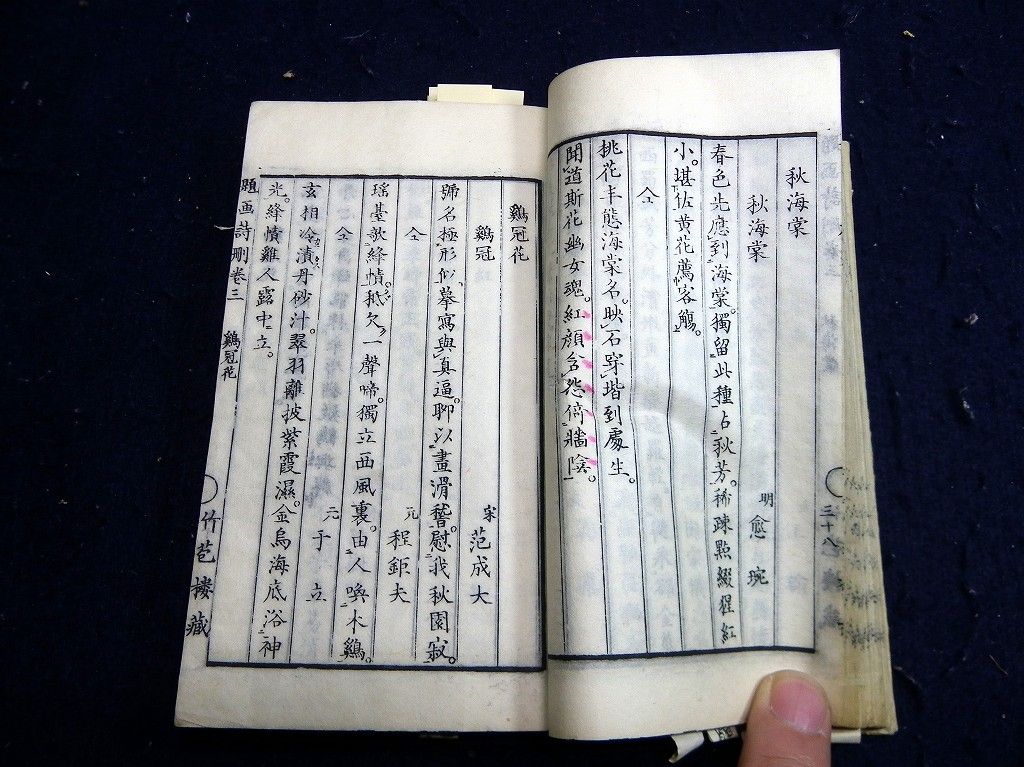 秋海棠
秋海棠
明 愈琬
春色先應到海棠。獨留此種占秋芳。稀疎點綴猩紅
小。堪佐黄花薦客觴。
仝
桃花丰態海棠名。映石穿堦到處生。
聞道斯花幽女魂。紅顔含怨倚牆陰。
三十八
鷄冠花
鷄冠
宋 范成大
號名極形似。摹寫與真逼。聊以畫滑稽。慰我秋園寂。
仝
元 程鉅夫
瑶臺歌絳幘。秖欠一聲啼。獨立西風裏。由人喚木鷄。
仝
元 于立
玄相冷漬丹砂汁。翠羽離披紫霞濕。金烏海底浴神
光。絳幘雞人露中立。
題画詩刪卷三 鷄冠花
竹苞楼藏